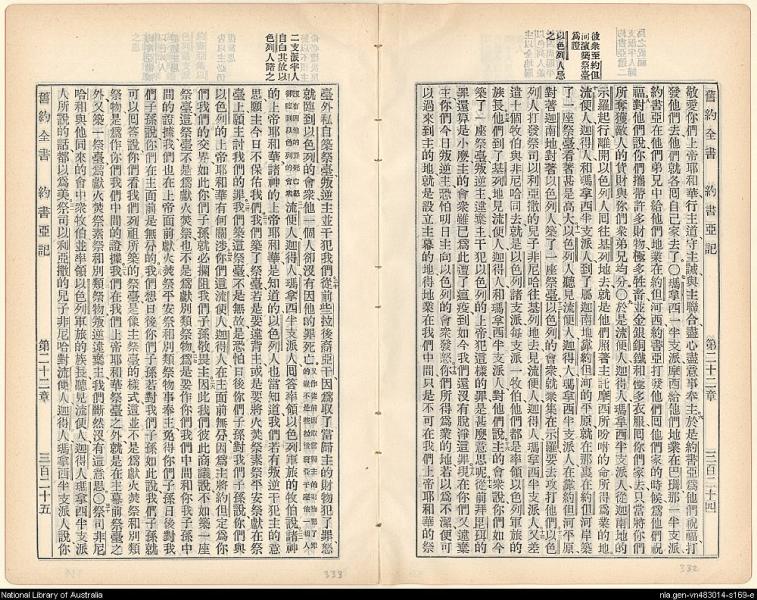 舊約全書 約書亞記 第二十二章 三百二十四
彼衆至約但
河濱築祭臺
爲證
以色列人怨
之
敬愛你們上帝耶和華行主道守主誡與主聯合盡心盡意事奉主於是約書亞爲他們祝福打
發他們去他們就各回自己家去了〇瑪拿西一半支派摩西給他們地業在巴珊那一半支派
約書亞在他們弟兄中給他們地業在約但河西約書亞打發他們回他們家的時候爲他們祝
福對他們說你們攜帶許多財物極多牲畜並金銀銅鐵和極多衣服回你們家去只當將你們
所奪獲敵人的貨財與你們衆弟兄均分〇於是流便人迦得人瑪拿西半支派人從迦南地的
示羅起行離開以色列人回往基列地去就是他們照著主託摩西所吩咐的命所得爲業的地
流便人迦得人和瑪拿西半支派人到了屬迦南地靠約但河的平原就在那邊在約但河岸築
了一座祭臺看著甚是高大以色列人聽見流便人迦得人瑪拿西半支派人在靠約但河平原
對著迦南地對著以色列人築了一座祭臺以色列的會衆就聚集在示羅要去攻打他們以色
列人打發祭司以利亞撒的兒子非尼哈往基列地去見流便人迦得人瑪拿西半支派人又差
遣十個牧伯與非尼哈同去就是以色列諸支派每支派一牧伯他們都是統領以色列軍旅的
族長他們到了基列地見流便人迦得人和瑪拿西半支派人對他們說主的會衆說你們如今
築了一座祭臺叛逆主違棄主干犯以色列的上帝這樣的罪是甚麼意思呢從前拜毘珥的
罪還算是小麼主的會衆雖已爲此遭了瘟疫到如今我們還沒有脫淨這罪現在你們又違棄
主你們今日叛逆主恐怕明日主向以色列的會衆發怒你們所得爲業的地若以爲不潔便可
以過來到主的地就是設立主幕的地得地業在我們中間只是不可在我們上帝耶和華的祭
二支派半人
自白其故以
色列人諾之
臺外私自築祭臺叛逆主並干犯我們從前些拉後裔亞干因爲取了當歸主的財物犯了罪怒
就臨到以色列的會衆他一個人卻沒有因他的罪死亡
流便人迦得人瑪拿西半支派人回答率領以色列軍旅的牧伯說諸神
的上帝耶和華諸神的上帝耶和華是知道的以色列人也當知道我們若有叛逆干犯主的意
思願主今日不保佑我們我們築了祭臺若是要違背主或是要將火焚祭素祭平安祭獻在祭
臺上願主討我們的罪我們築這祭臺不是無故是恐怕日後你們子孫對我們子孫說你們與
以色列的上帝耶和華有何關涉你們這流便人迦得人在主面前無分因爲主將約但定爲你
們我們的交界如此你們子孫就必攔阻我們子孫敬畏主因此我們彼此商議說不如築一座
祭臺這祭臺不是爲獻火焚祭也不是爲獻別類祭物爲是要作你們我們中間和你我子孫中
間的證據我們也在上帝面前獻火焚祭平安祭和別類祭物事奉主免得你們子孫日後對我
們子孫說你們在主面前是無分的我們想日後你們子孫若對我們子孫如此說我們子孫就
可以回答說你們看我們列祖所築的祭臺是像主祭臺的樣式這並不是爲獻火焚祭和別類
祭物是爲作你們我們中間的證據我們在我們上帝耶和華祭臺之外就是在主幕前祭臺之
外又築一祭臺爲獻火焚祭素祭和別類祭物叛逆違棄主我們斷然沒有這意思〇祭司非尼
哈和與他同來的會中衆牧伯並率領以色列軍旅的族長聽見流便人迦得人瑪拿西半支派
人所說的話都以爲美祭司以利亞撒的兒子非尼哈對流便人迦得人瑪拿西半支派人說你
舊約全書 約書亞記 第二十二章 三百二十五
333
332
National Library of Australia
nla.gen-vn483014-s169-e